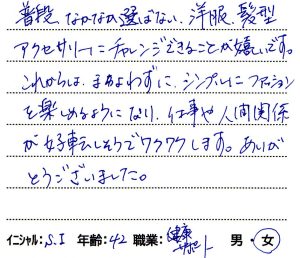 普段、なかなか選ばない、洋服、髪型
アクセサリーにチャレンジできることが嬉しいです。
これからは、まよわずに、シンプルにファッション
を楽しめるようになり、仕事や人間関係
が好転しそうでワクワクします。ありが
とうございました。
イニシャル:S.I 年齢:42 職業:健康サポート 男・女